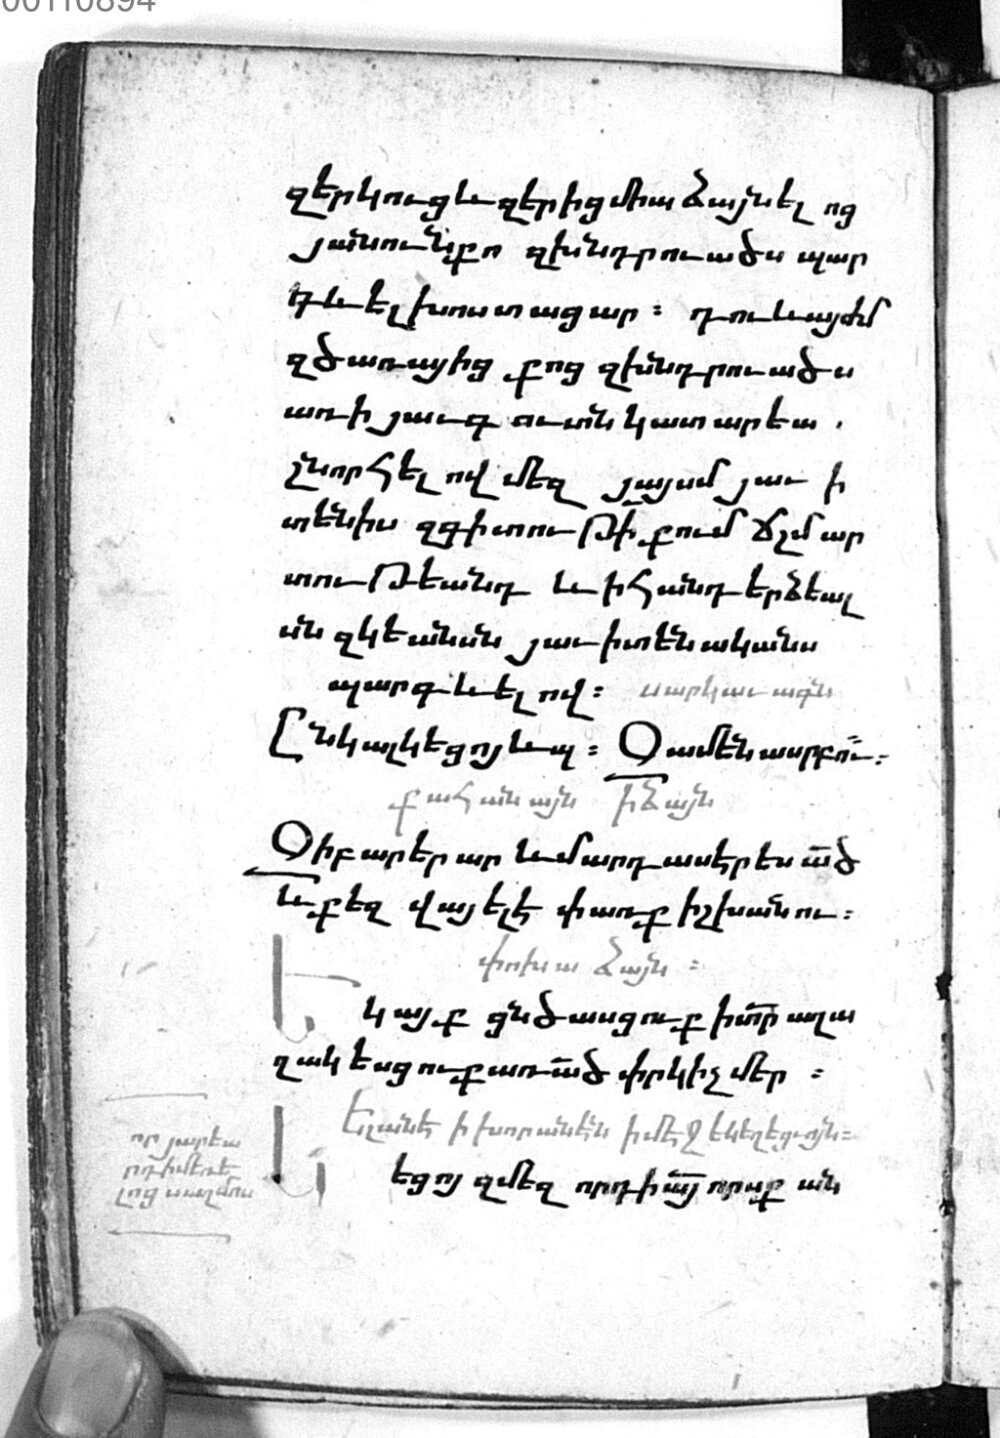 00110894
զերկուց և զերից միաձայնելոց
յանուն քո զխնդրուածս պար
գևել խոստացար։ դու և այժմ
զծառայից քոց զխնդրուածս
առ ի յաւգուտն կատարեա .
շնորհելով մեզ յայսմ յաւի
տենիս զգիտութի քում ճշմար
տութեանդ և ի հանդերձեալ
ան զկեանսն յաւիտենականս
պարգևելով։ սարկաւագն
Ընկալ կեցոյ և պ։ Զամենասրբու։
քահանայն ի ձայն
Զի բարերար և մարդասեր ես ած
և քեզ վայելէ փառք իշխանու։
փոխա ձայն ։
Եկայք ցնծասցուք ի տր աղա
ղակեսցուք առ ած փրկիչ մեր ։
Ելանէ ի խորանէն ի մէջ եկեղեցւոյն։
եցոյ զմեզ որդի այ որսք ան
որ յարեա
ի մեռե
լոց սաղմոս